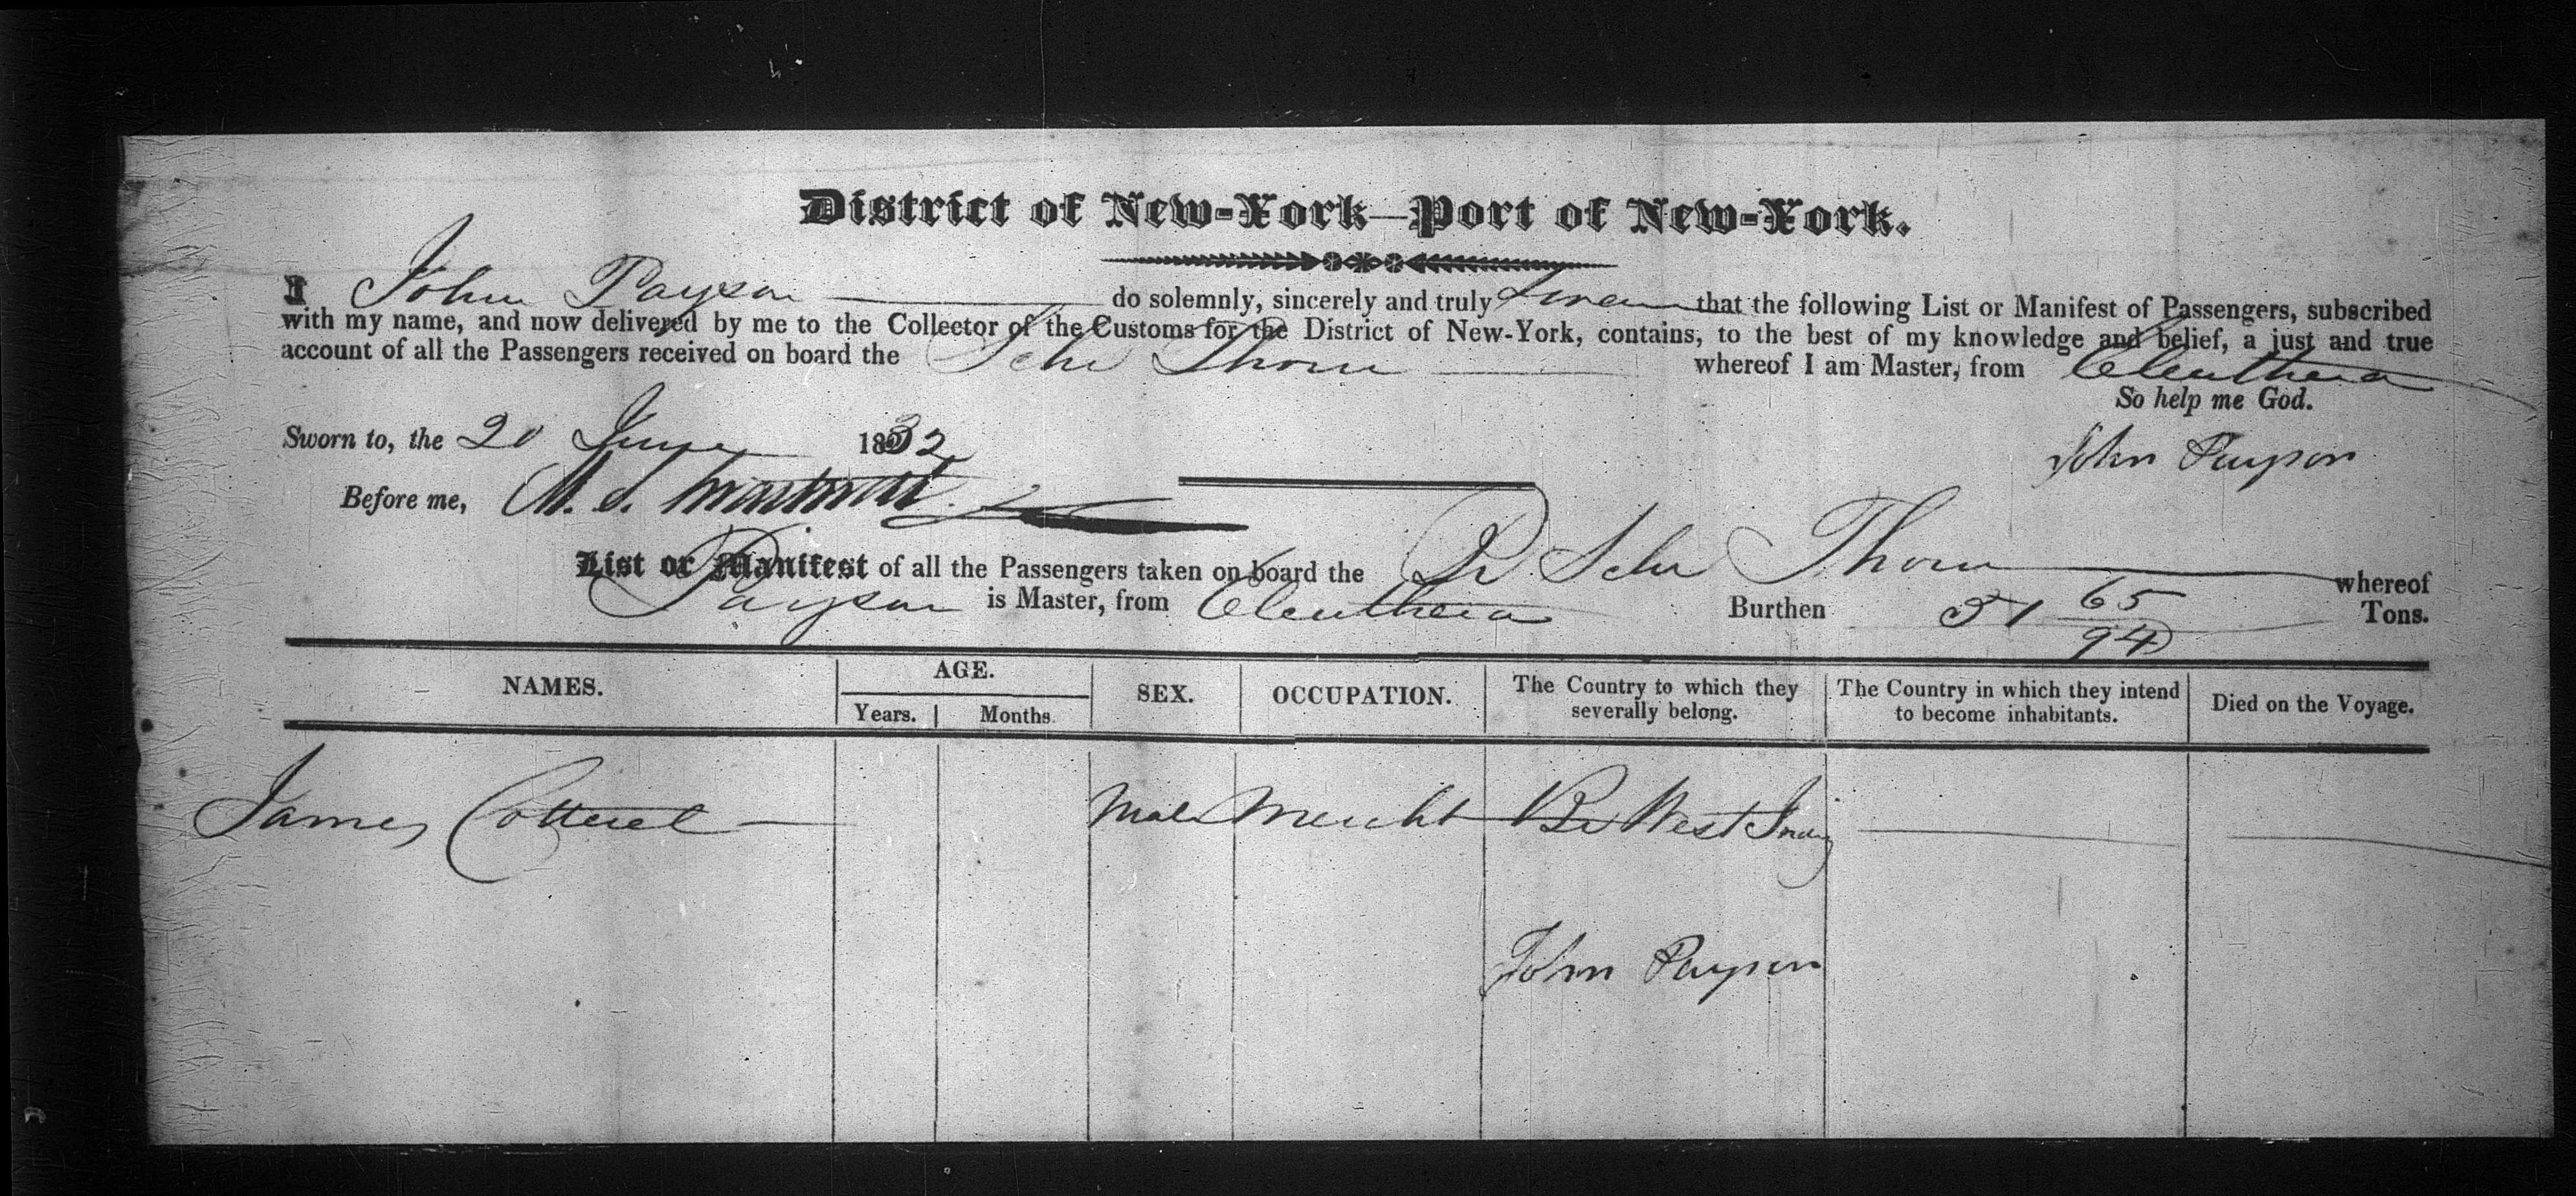 District of New-York—Port of New-York.
I John Payson do solemnly, sincerely and truly swear that the following List or Manifest of Passengers, subscribed
with my name, and now delivered by me to the Collector of the Customs for the District of New-York, contains, to the best of my knowledge and belief, a just and true
account of all the Passengers received on board the Schr Thorn whereof I am Master, from Eleuthera
So help me God.
Sworn to, the 20 June 1832
John Payson
Before me, M. S.
List or Manifest of all the Passengers taken on board the Br Schr Thorn whereof
Payson is Master, from Eleuthera Burthen 51 65/94 Tons.
NAMES. AGE. SEX. OCCUPATION. The Country to which they severally belong. The Country in which they intend to become inhabitants. Died on the Voyage.
Years. Months
James Cotterel Male Mercht Br West Indies
John Payson